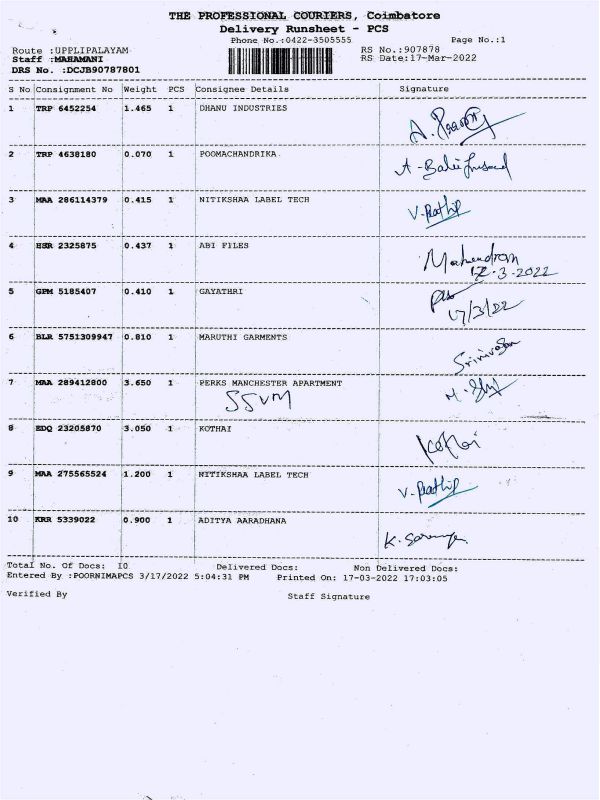 THE PROFESSIONAL COURIERS, Coimbatore
Delivery Runsheet - PCS
Phone No.:0422-3505555 Page No.:1
Route :UPPLIPALAYAM RS No.:907878
Staff :MAHAMANI RS Date:17-Mar-2022
DRS No. :DCJB90787801
S No Consignment No Weight PCS Consignee Details Signature
1 TRP 6452254 1.465 1 DHANU INDUSTRIES
2 TRP 4638180 0.070 1 POOMACHANDRIKA
3 MAA 286114379 0.415 1 NITIKSHAA LABEL TECH V. Prathip
4 HSR 2325875 0.437 1 ABI FILES Mahendran
17-3-2022
5 GPM 5185407 0.410 1 GAYATHRI
17/3/22
6 BLR 5751309947 0.810 1 MARUTHI GARMENTS Srinivasan
7 MAA 289412800 3.650 1 PERKS MANCHESTER APARTMENT
SSVM
8 EDQ 23205870 3.050 1 KOTHAI Kothai
9 MAA 275565524 1.200 1 NITIKSHAA LABEL TECH V. Prathip
10 KRR 5339022 0.900 1 ADITYA AARADHANA K. Saranya
Total No. Of Docs: 10 Delivered Docs: Non Delivered Docs:
Entered By :POORNIMAPCS 3/17/2022 5:04:31 PM Printed On: 17-03-2022 17:03:05
Verified By Staff Signature